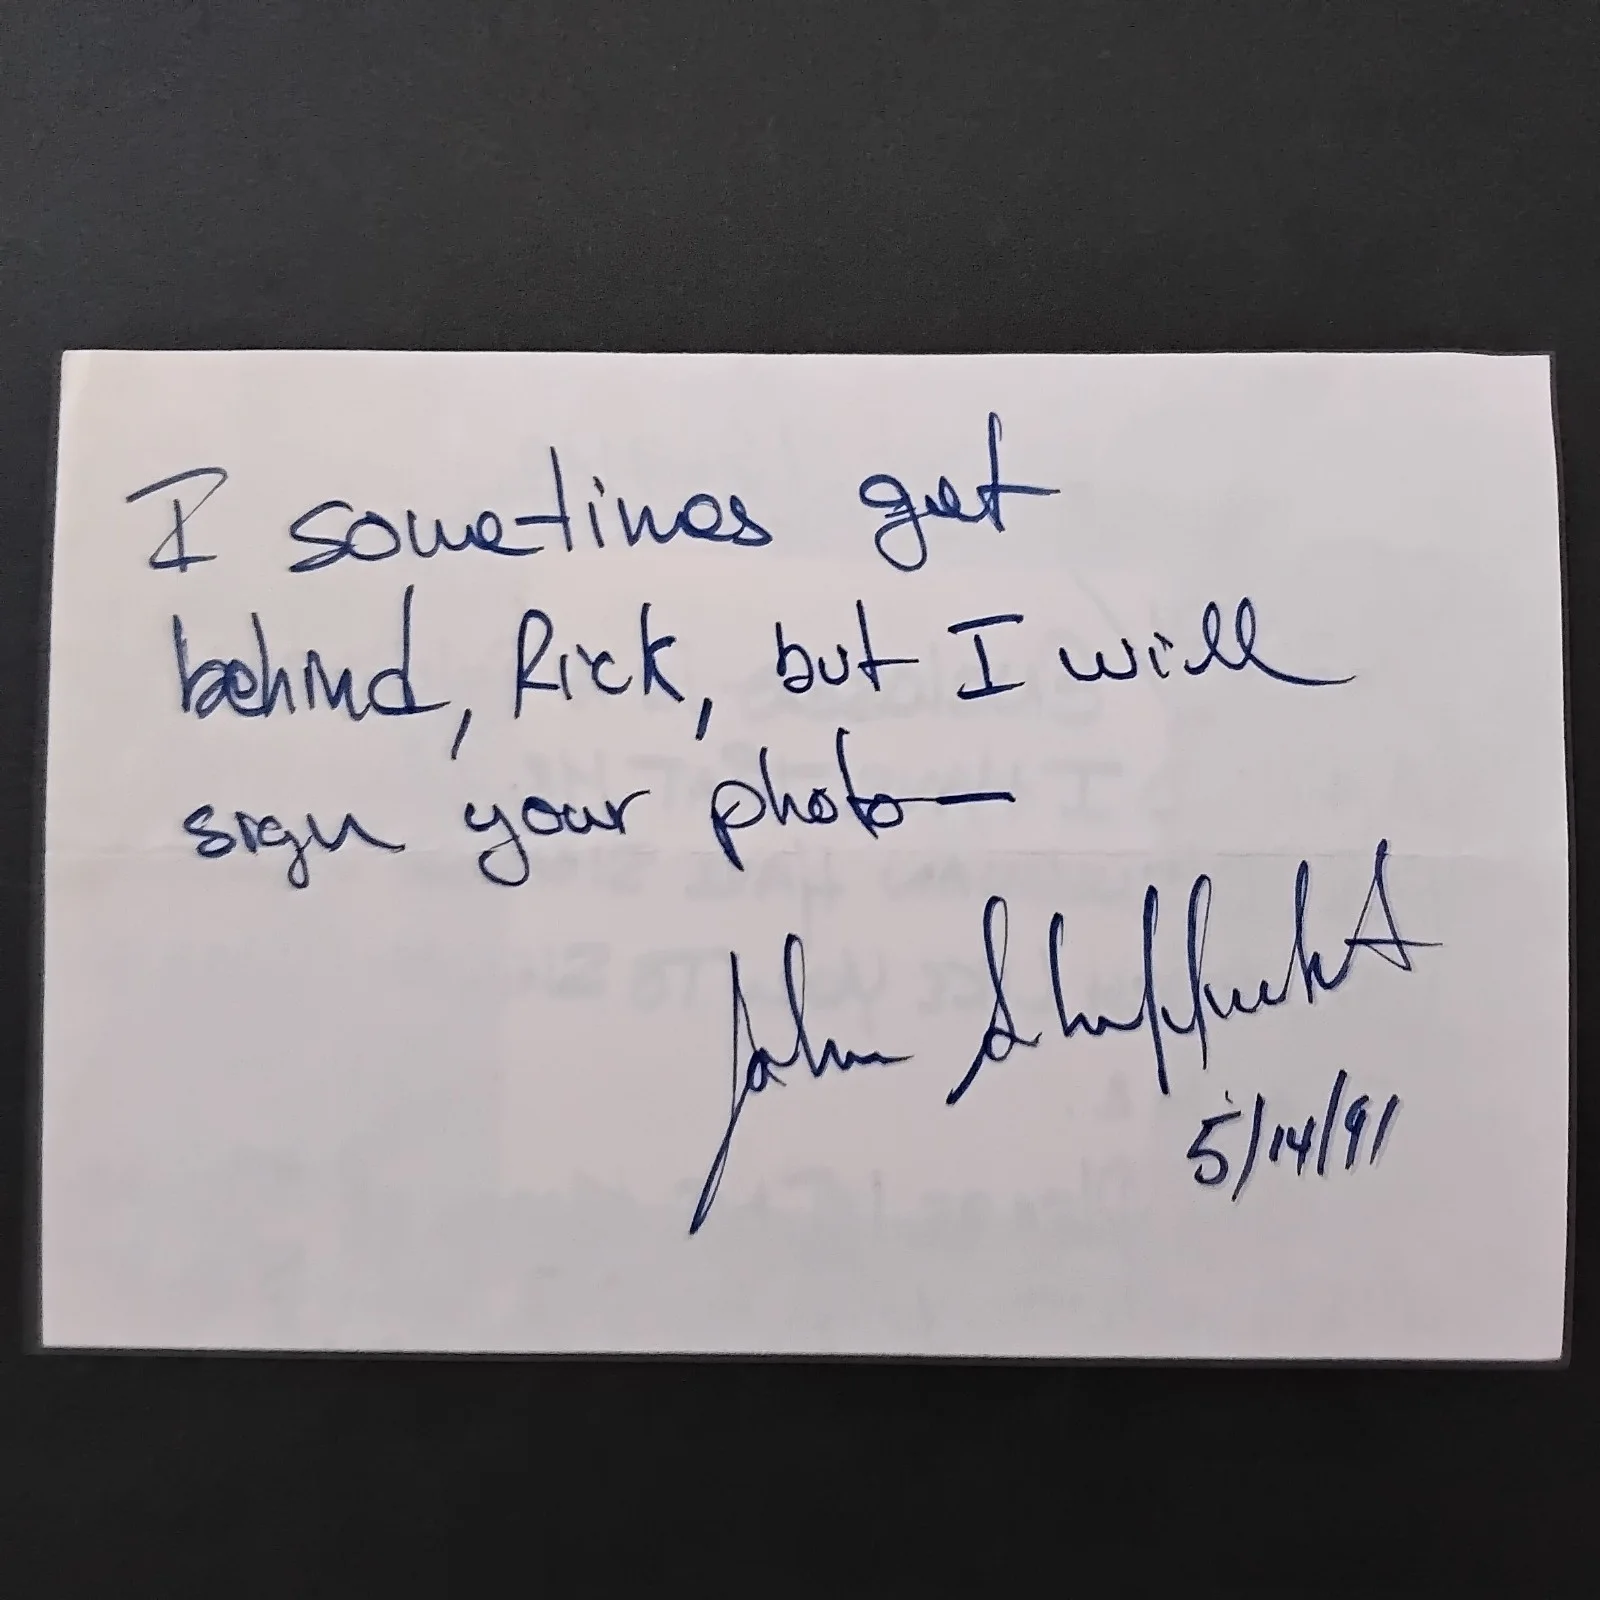 I sometimes get
behind, Rick, but I will
sign your photo—
John
5/14/91